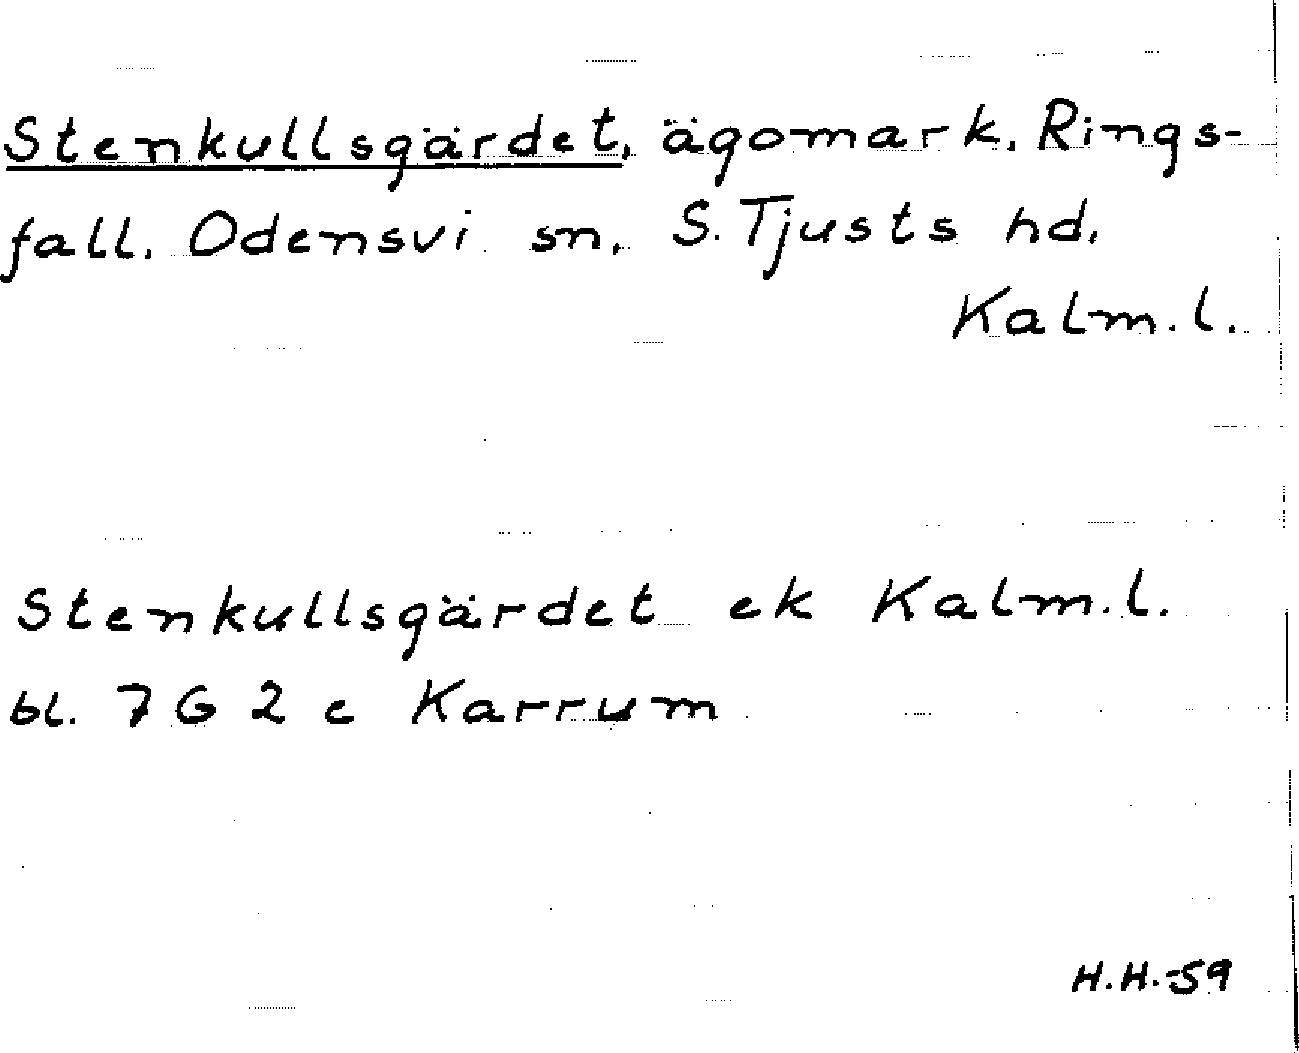 Stenkullsgärdet, ägomark, Rings-
fall, Odensvi sn, S. Tjusts hd,
Kalm. l.
Stenkullsgärdet ek Kalm. l.
bl. 7 G 2 c Karrum
H.H.-59